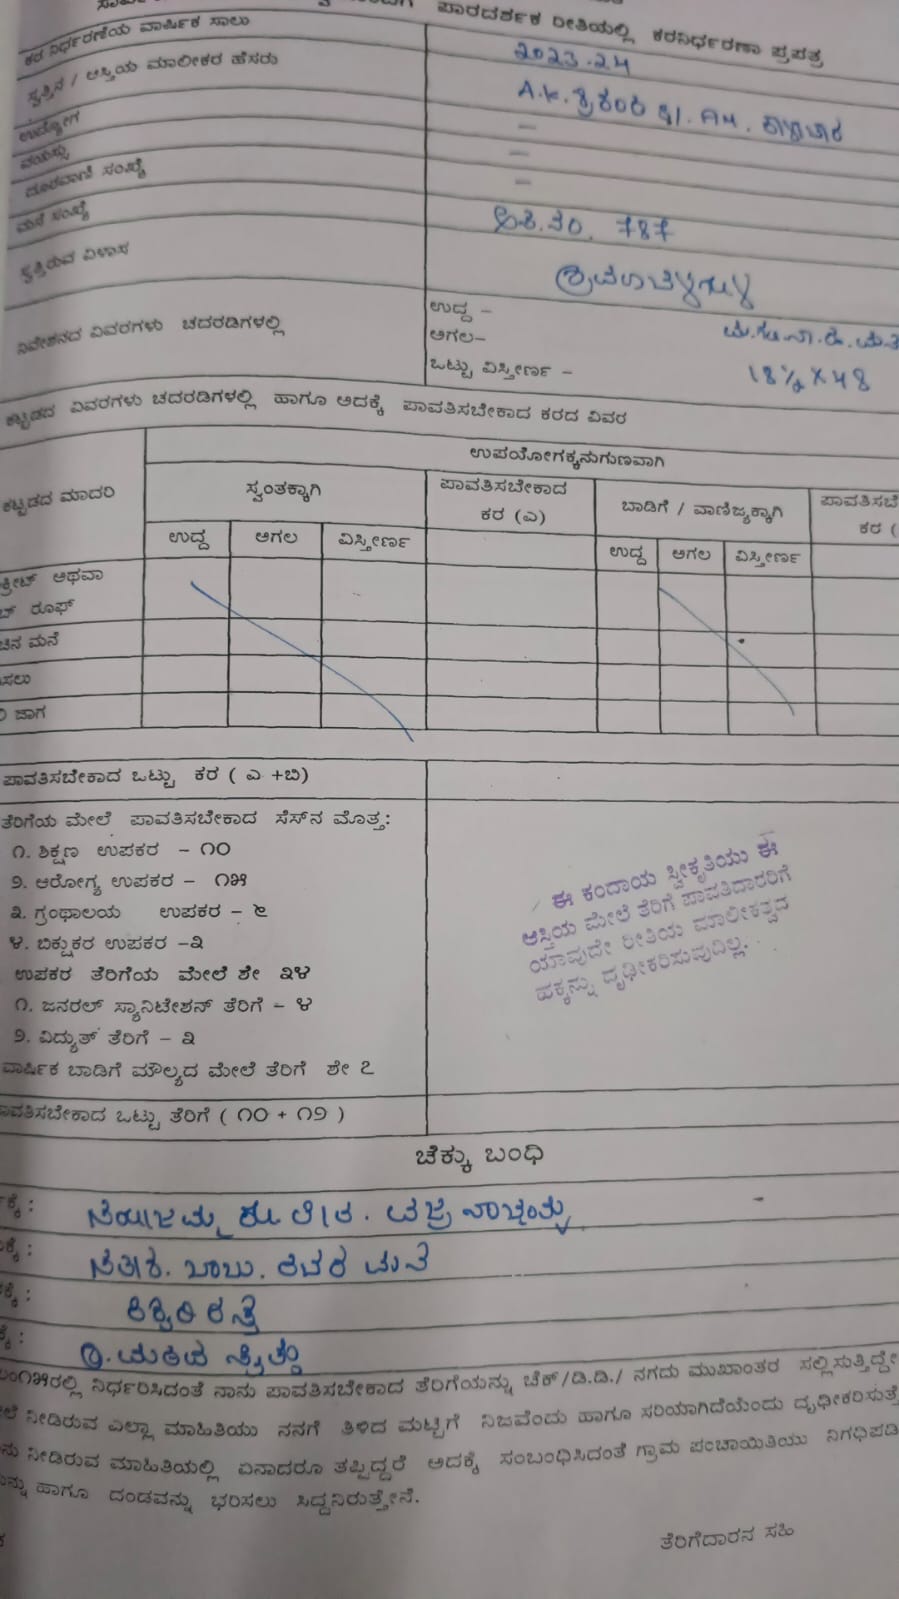 ಪಾರದರ್ಶಕ ರೀತಿಯಲ್ಲಿ ಕರನಿರ್ಧರಣಾ ಪ್ರಪತ್ರ
ಕರ ನಿರ್ಧರಣೆಯ ವಾರ್ಷಿಕ ಸಾಲು 2023-24
ಸ್ವತ್ತಿನ / ಆಸ್ತಿಯ ಮಾಲೀಕರ ಹೆಸರು A.K.
ಉದ್ಯೋಗ –
ವಯಸ್ಸು –
ದೂರವಾಣಿ ಸಂಖ್ಯೆ –
ಮನೆ ಸಂಖ್ಯೆ 787
ಸ್ವತ್ತಿರುವ ವಿಳಾಸ ಶ್ರವಣಬೆಳಗೊಳ
ನಿವೇಶನದ ವಿವರಗಳು ಚದರಡಿಗಳಲ್ಲಿ
ಉದ್ದ –
ಅಗಲ–
ಒಟ್ಟು ವಿಸ್ತೀರ್ಣ – 18½ X 48
ಕಟ್ಟಡದ ವಿವರಗಳು ಚದರಡಿಗಳಲ್ಲಿ ಹಾಗೂ ಅದಕ್ಕೆ ಪಾವತಿಸಬೇಕಾದ ಕರದ ವಿವರ
ಉಪಯೋಗಕ್ಕನುಗುಣವಾಗಿ
ಕಟ್ಟಡದ ಮಾದರಿ
ಸ್ವಂತಕ್ಕಾಗಿ
ಪಾವತಿಸಬೇಕಾದ
ಕರ (ಎ)
ಬಾಡಿಗೆ / ವಾಣಿಜ್ಯಕ್ಕಾಗಿ
ಪಾವತಿಸಬೇ
ಕರ (
ಉದ್ದ ಅಗಲ ವಿಸ್ತೀರ್ಣ ಉದ್ದ ಅಗಲ ವಿಸ್ತೀರ್ಣ
ಕ್ರೀಟ್ ಅಥವಾ
ರೂಫ್
ಚಿನ ಮನೆ
ಸಲು
ಜಾಗ
ಪಾವತಿಸಬೇಕಾದ ಒಟ್ಟು ಕರ ( ಎ +ಬಿ)
ತೆರಿಗೆಯ ಮೇಲೆ ಪಾವತಿಸಬೇಕಾದ ಸೆಸ್‌ನ ಮೊತ್ತ:
೧. ಶಿಕ್ಷಣ ಉಪಕರ – ೧೦
೨. ಆರೋಗ್ಯ ಉಪಕರ – ೧೫
೩. ಗ್ರಂಥಾಲಯ ಉಪಕರ – ೬
೪. ಬಿಕ್ಷುಕರ ಉಪಕರ –೩
ಉಪಕರ ತೆರಿಗೆಯ ಮೇಲೆ ಶೇ ೩೪
೧. ಜನರಲ್ ಸ್ಯಾನಿಟೇಶನ್ ತೆರಿಗೆ – ೪
೨. ವಿದ್ಯುತ್ ತೆರಿಗೆ – ೩
ವಾರ್ಷಿಕ ಬಾಡಿಗೆ ಮೌಲ್ಯದ ಮೇಲೆ ತೆರಿಗೆ ಶೇ ೭
ಪಾವತಿಸಬೇಕಾದ ಒಟ್ಟು ತೆರಿಗೆ ( ೧೦ + ೧೨ )
ಈ ಕಂದಾಯ ಸ್ವೀಕೃತಿಯು ಈ
ಆಸ್ತಿಯ ಮೇಲೆ ತೆರಿಗೆ ಪಾವತಿದಾರರಿಗೆ
ಯಾವುದೇ ರೀತಿಯ ಮಾಲೀಕತ್ವದ
ಹಕ್ಕನ್ನು ದೃಢೀಕರಿಸುವುದಿಲ್ಲ.
ಚೆಕ್ಕು ಬಂಧಿ
ಕ್ಕೆ :
ಕ್ಕೆ : ಬಾಬು. ರವರ ಮನೆ
ಕ್ಕೆ : ರಸ್ತೆ
ಕ್ಕೆ :
೧೫ರಲ್ಲಿ ನಿರ್ಧರಿಸಿದಂತೆ ನಾನು ಪಾವತಿಸಬೇಕಾದ ತೆರಿಗೆಯನ್ನು ಚೆಕ್/ಡಿ.ಡಿ./ ನಗದು ಮುಖಾಂತರ ಸಲ್ಲಿಸುತ್ತಿದ್ದೇ
ಲೆ ನೀಡಿರುವ ಎಲ್ಲಾ ಮಾಹಿತಿಯು ನನಗೆ ತಿಳಿದ ಮಟ್ಟಿಗೆ ನಿಜವೆಂದು ಹಾಗೂ ಸರಿಯಾಗಿದೆಯೆಂದು ದೃಢೀಕರಿಸುತ್ತೆ
ನು ನೀಡಿರುವ ಮಾಹಿತಿಯಲ್ಲಿ ಏನಾದರೂ ತಪ್ಪಿದ್ದರೆ ಅದಕ್ಕೆ ಸಂಬಂಧಿಸಿದಂತೆ ಗ್ರಾಮ ಪಂಚಾಯಿತಿಯು ನಿಗಧಿಪಡಿ
ನ್ನು ಹಾಗೂ ದಂಡವನ್ನು ಭರಿಸಲು ಸಿದ್ದನಿರುತ್ತೇನೆ.
ತೆರಿಗೆದಾರನ ಸಹಿ